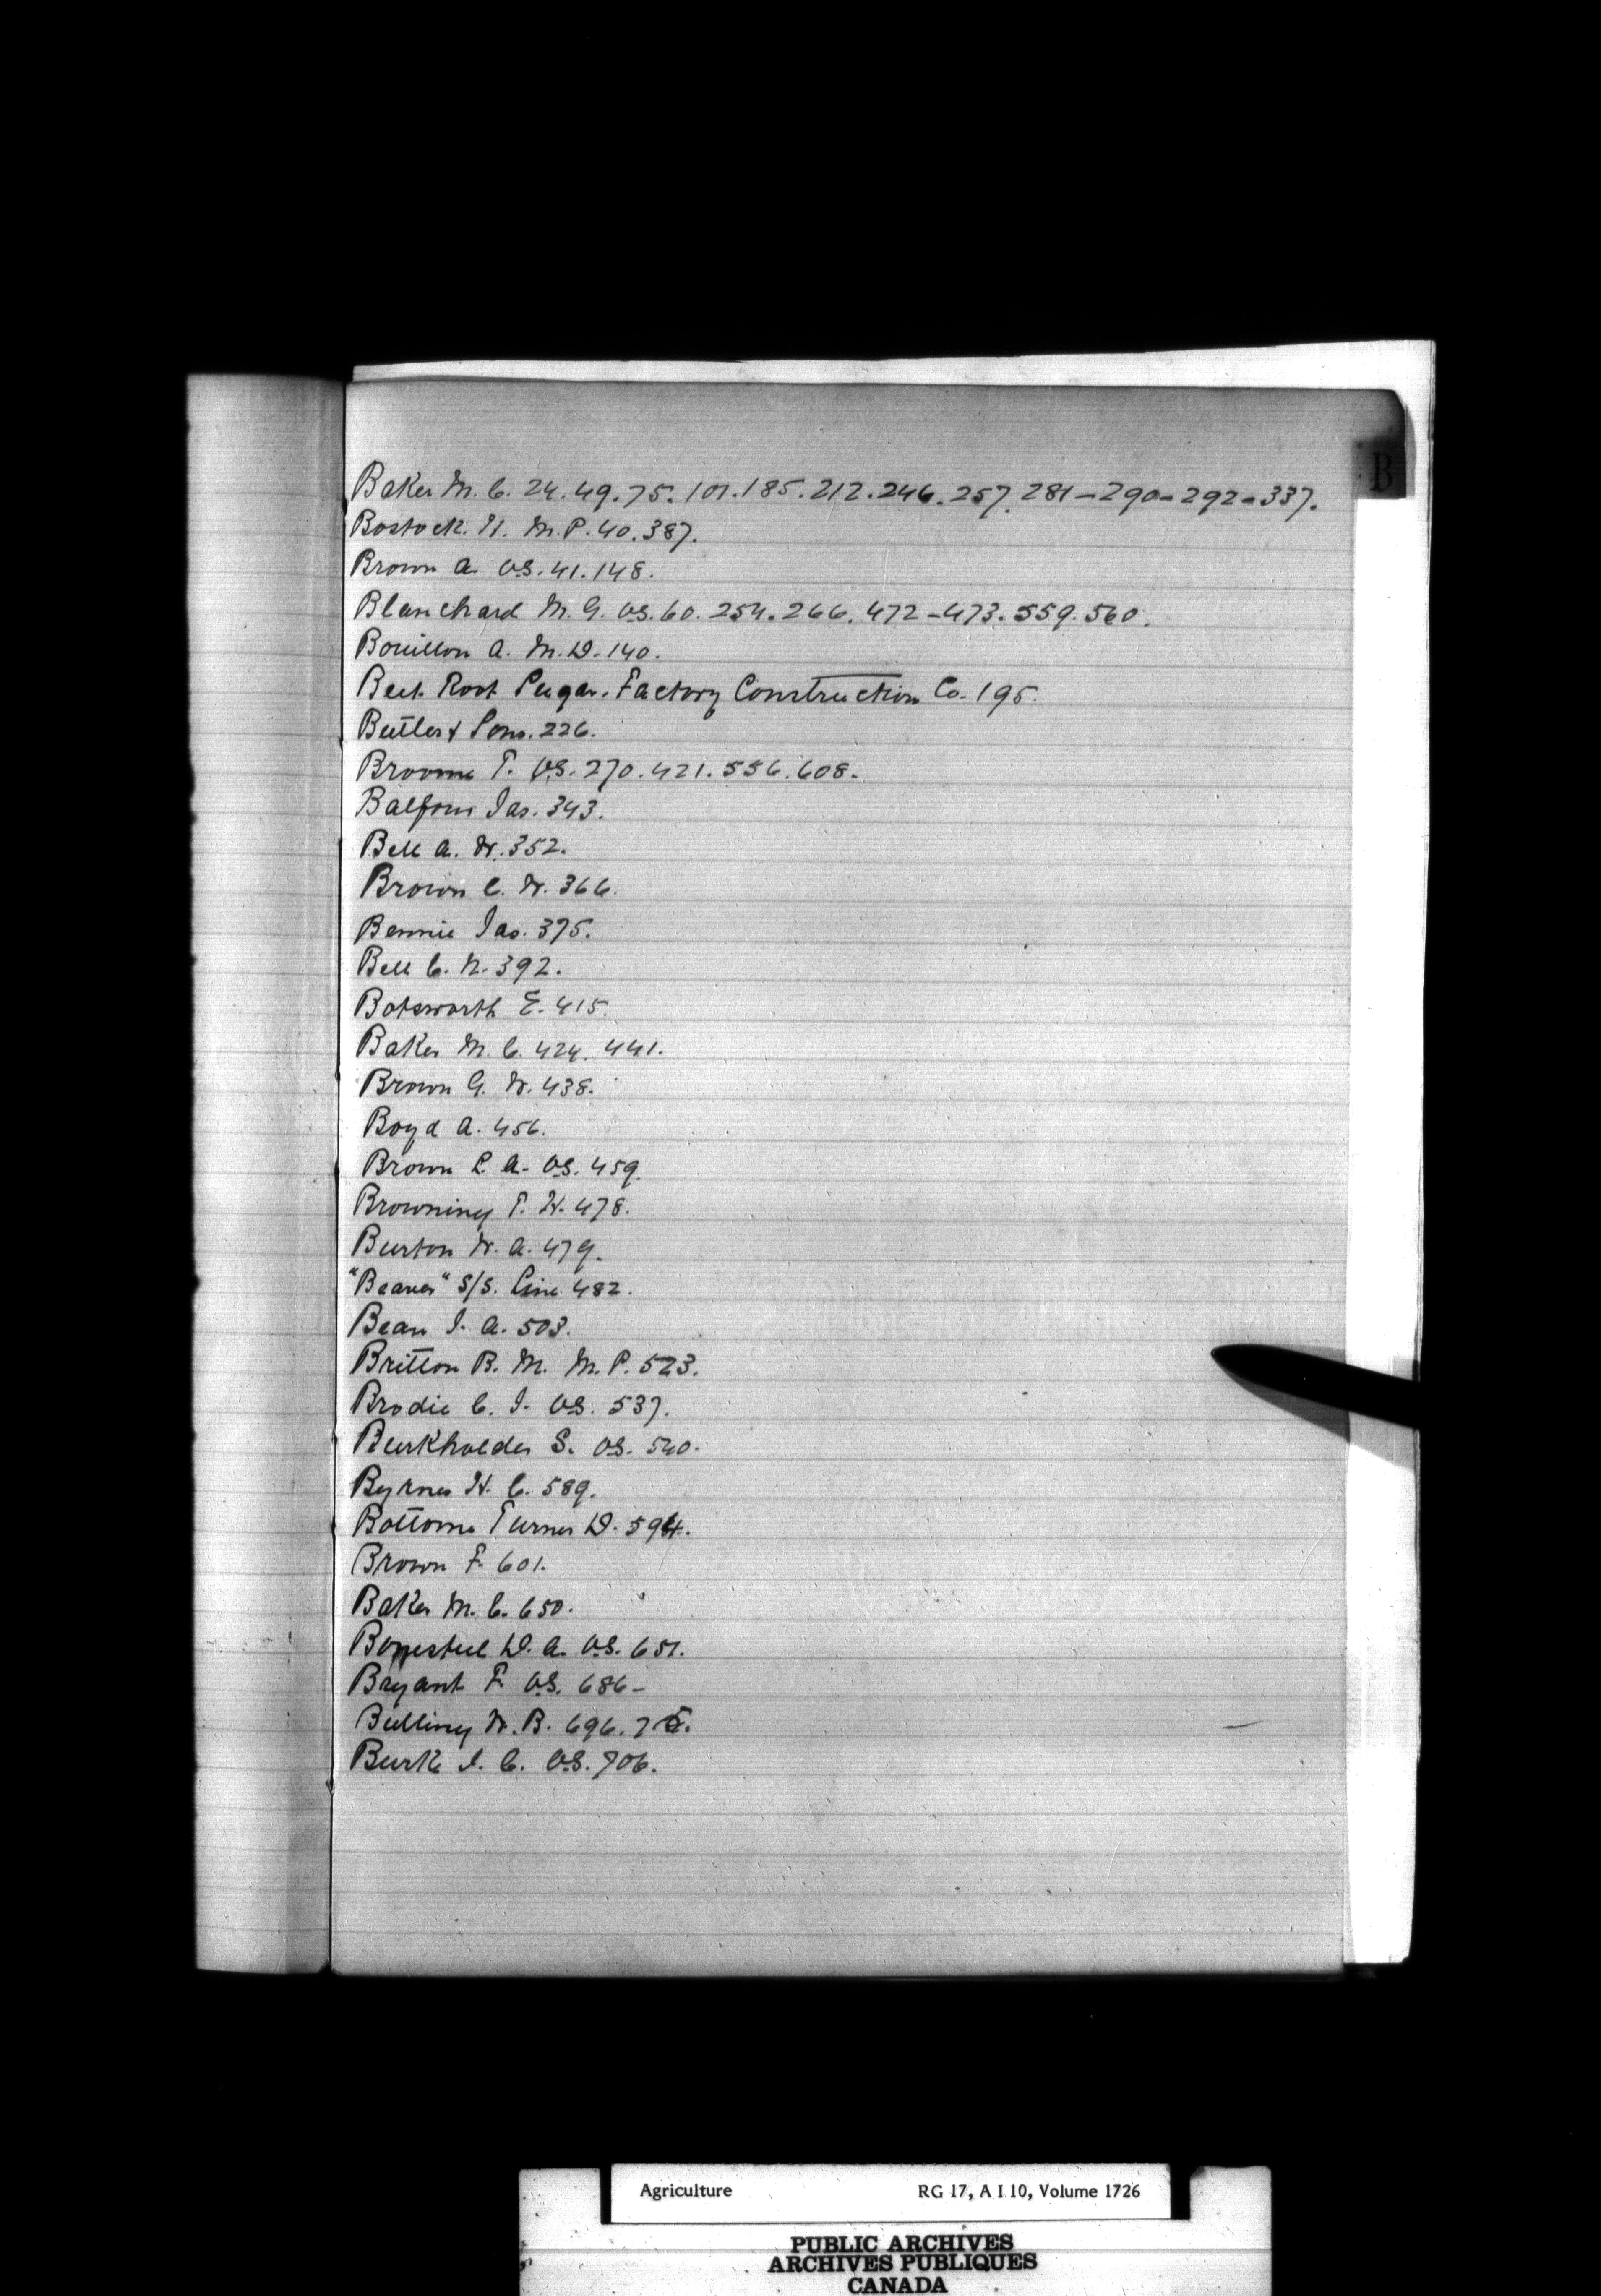 B
Baker M. C. 24. 49. 75. 101. 185. 212. 246. 257. 281 - 290 - 292 - 337.
Bostock. H. M.P. 40. 387.
Brown A. V.S. 41. 148.
Blanchard M. G. V.S. 60. 254. 266. 472 - 473. 559. 560.
Bouillon A. M.D. 140.
Beet Root Sugar. Factory Construction Co. 195.
Butler & Sons. 226.
Broome T. V.S. 270. 421. 556. 608.
Balfour Jas. 343.
Bell A. W. 352.
Brown C. W. 366.
Bennie Jas. 375.
Bell C. N. 392.
Botsworth E. 415.
Baker M. C. 424. 441.
Brown G. W. 438.
Boyd A. 456.
Brown L. A. V.S. 459.
Browning T. H. 478.
Burton W. A. 479.
"Beaver" S/S. Line 482.
Bean J. A. 503.
Britton B. M. M.P. 523.
Brodie C. J. V.S. 537.
Burkholder S. V.S. 540.
Byrnes H. C. 589.
Bottome Turner D. 594.
Brown F. 601.
Baker M. C. 650.
Bonesteel D. A. V.S. 651.
Bryant F. V.S. 686 -
Belling W. B. 696.
Burk J. C. V.S. 706.
Agriculture RG 17, A I 10, Volume 1726
PUBLIC ARCHIVES
ARCHIVES PUBLIQUES
CANADA